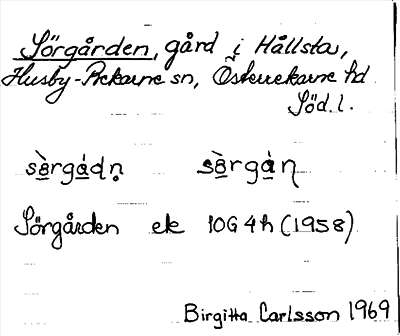 Sörgården, gård i Hållsta,
Husby-Rekarne sn, Österrekarne hd
Söd. l.
sö̀rgádn̥ sö̀rgàɳ
Sörgården ek 10G 4h (1958)
Birgitta Carlsson 1969